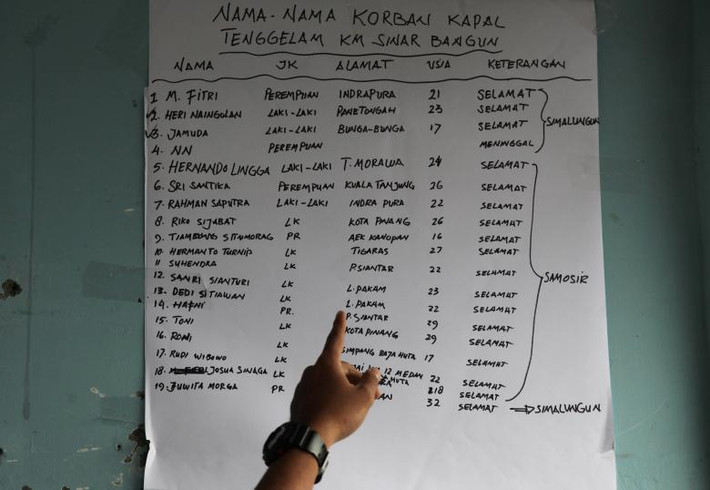 NAMA-NAMA KORBAN KAPAL
TENGGELAM KM SINAR BANGUN
NAMA JK ALAMAT USIA KETERANGAN
1 M. FITRI PEREMPUAN INDRAPURA 21 SELAMAT
2. HERI NAINGOLAN LAKI-LAKI PANETONGAH 23 SELAMAT
3. JAMUDA LAKI-LAKI BUNGA-BUNGA 17 SELAMAT
SIMALUNGUN
4. NN PEREMPUAN MENINGGAL
5. HERNANDO LINGGA LAKI-LAKI T. MORAWA 24 SELAMAT
6. SRI SANTIKA PEREMPUAN KUALA TANJUNG 26 SELAMAT
7. RAHMAN SAPUTRA LAKI-LAKI INDRA PURA 22 SELAMAT
8. RIKO SIJABAT LK KOTA PINANG 26 SELAMAT
9. TIAMBUNG SITUMORAG PR AEK KANOPAN 16 SELAMAT
10. HERMANTO TURNIP LK TIGARAS 27 SELAMAT
11 SUHENDRA LK P.SIANTAR 22 SELAMAT
SAMOSIR
12. SANRI SIANTURI LK L. PAKAM 23 SELAMAT
13. DEDI SITIAWAN LK L. PAKAM 22 SELAMAT
14. HAFNI PR. P. SIANTAR 29 SELAMAT
15. TONI LK KOTA PINANG 29 SELAMAT
16. RONI
17. RUDI WIBOWO LK SIMPANG RAYA HUTA 17 SELAMAT
18. JOSUA SINAGA LK 12 MEDAN 22 SELAMAT
19. JUWITA MORGA PR 18 SELAMAT
32 SELAMAT ⇒ SIMALUNGUN